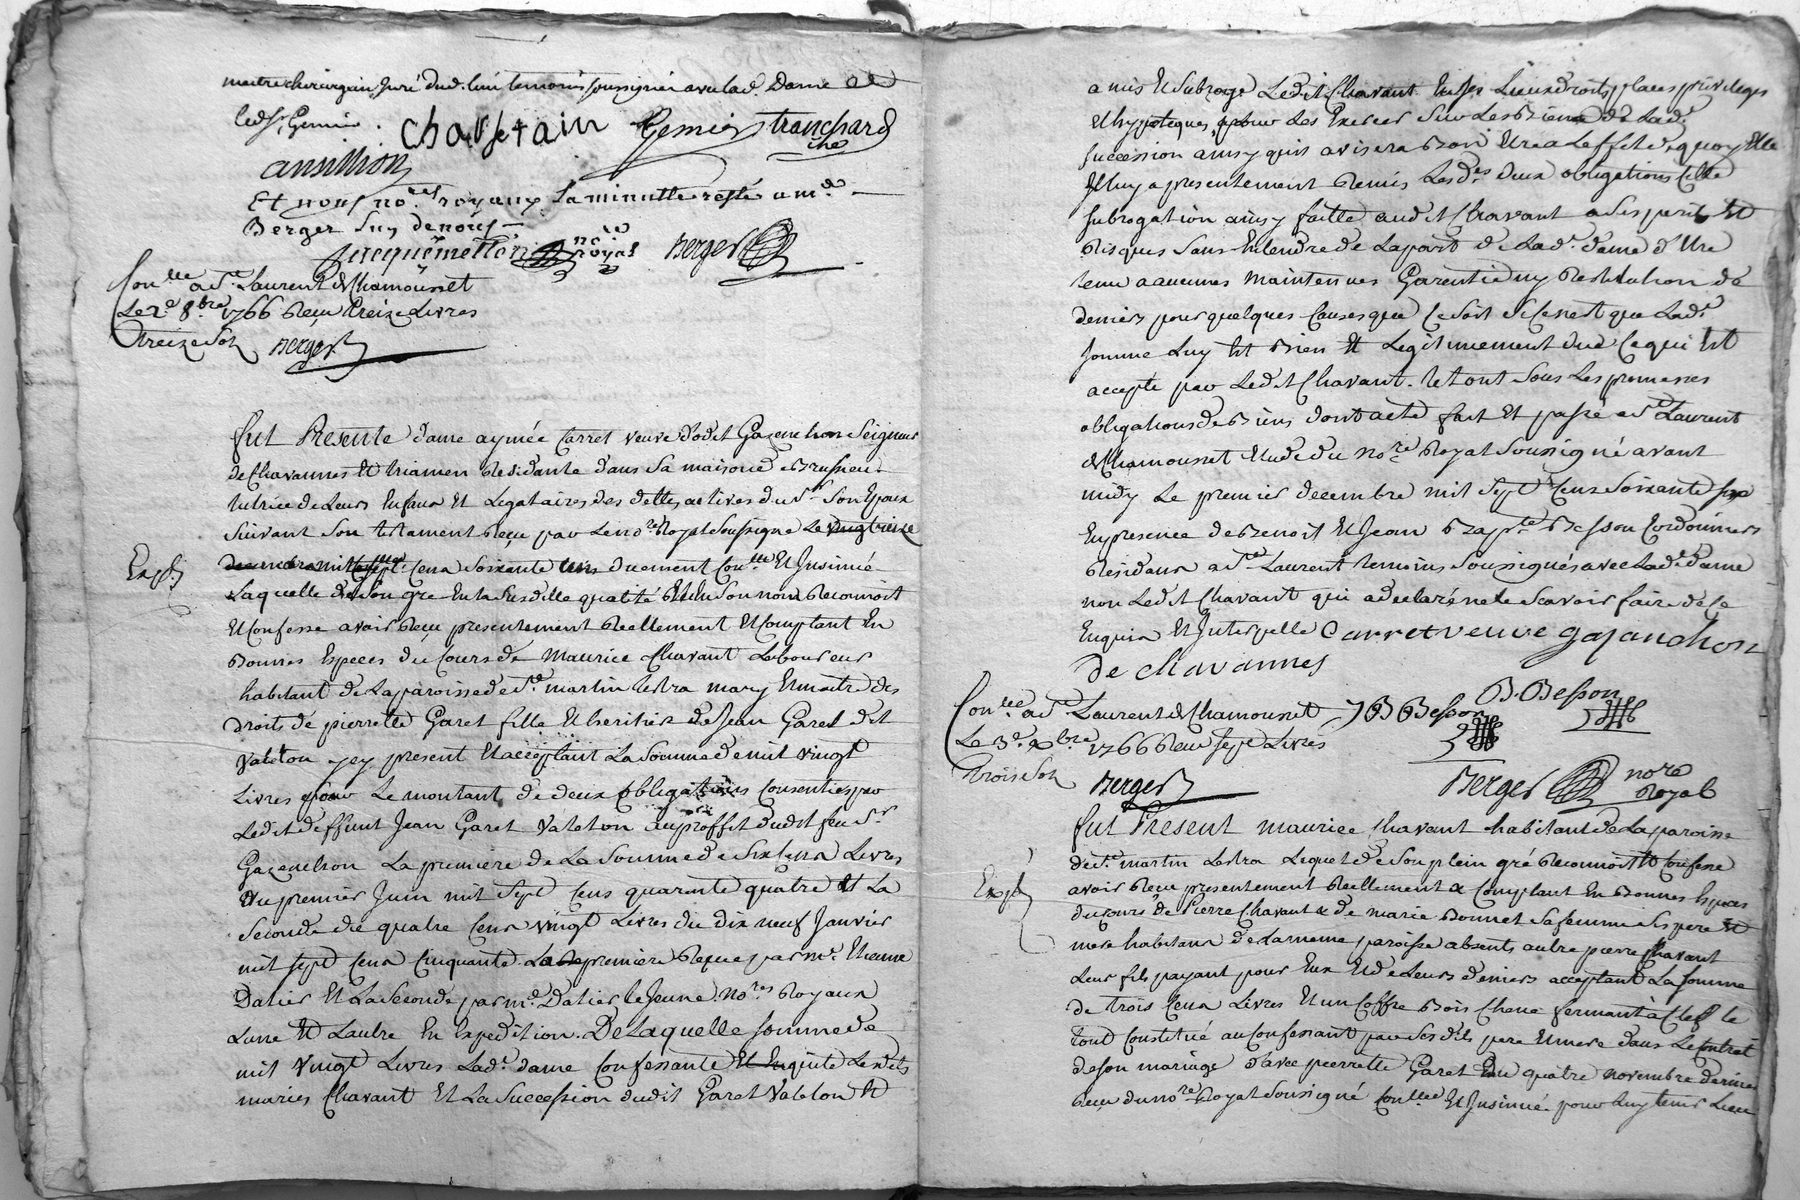 maitre chirurgien juré dud. lieu temoins soussignés avec lad. Dame et
ledt Sr. Gemier.
Chausetain Gemier tranchard
anillion
Et nous nores royaux la minutte resté a me
Berger l'un de nous
Jacquemetton nore royal Berger
Conllé a St Laurent de Chamousset
Le 2e 8bre 1766 Reçu treize Livres
treize Sols Berger
Expé
fut Presente dame aymée Carret veuve d'odet Gazenchon Seigneur
de Chavannes et triamen Residante dans sa maison de Brussieu
tutrice de Leurs Enfans et Legataires des dettes actives du Sr Son Epoux
Suivant Son testament Reçu par le nore Royal Soussigné Le vingt treize
mil sept Cens Soixante duement Conllé Et Insinué
Laquelle de Son gré En la Susdille qualité Et En Son nom Reconnoit
Et Confesse avoir Reçu presentement Reellement Et Comptant En
Bonnes Especes du Cours de Maurice Chavant Laboureur
habitant de La paroisse de St martin Lestra mary Et maitre des
Droits de pierrette Garet fille Et heritiere de Jean Garet dit
Valeton icy present Et acceptant La Somme de mil vingt
Livres pour Le montant de deux obligations Consenties par
Ledit deffunt Jean Garet Valeton au proffit dudit feu Sr
Gazenchon La premiere de La Somme de Six Cens Livres
du premier Juin mil Sept Cens quarante quatre Et La
Seconde de quatre Cens vingt Livres du dix neuf Janvier
mil sept Cens Cinquante La premiere Reçue par me Etienne
Dalier Et La Seconde par me Dalier le Jeune nores Royaux
Lune Et Lautre En Expedition. De Laquelle Somme de
mil vingt Livres Lade dame Confessante Et En quitte Lesdits
mariés Chavant Et La Succession dudit Garet Valeton Et
a mis Et Subrogé Ledit Chavant En Ses Lieux droits places privileges
Et hypoteques pour Les Exercer Sur Les Biens de Lade
Succession ainsy quil avisera Bon Etre a Leffet de quoy Elle
Luy a presentement Remis Lesdes deux obligations Cette
Subrogation ainsy faitte audit Chavant a Ses perils Et
Risques Sans Entendre de La part de Lade dame d'Etre
tenue a aucunes maintenues Garentie ny Restitution de
deniers pour quelques Causes que Ce Soit Si Ce nest que Lade
Somme Luy Est Bien Et Legitimement due Ce qui Est
accepté par Ledit Chavant. Le tout Sous Les promesses
obligations de Biens dont acte fait Et passé a St Laurent
de Chamousset Etude du nore Royal Soussigné avant
midy Le premier decembre mil Sept Cens Soixante Six
En presence de Benoit Et Jean Bapte Besson Cordonniers
Residans a St Laurent temoins Soussignés avec Lade dame
non Ledit Chavant qui a declaré ne le Scavoir faire de Ce
Enquis Et Interpellé Carret veuve gajanchon
De chavannes
B. Besson
J B Besson
Conllé a St Laurent de Chamousset
Le 3e Xbre 1766 Reçu Sept Livres
trois Sols Berger Berger nore
Royal
Expé
fut Present maurice Chavant habitant de La paroisse
de St martin Lestra Lequel de Son plein gré Reconnoit Et Confesse
avoir Reçu presentement Reellement & Comptant En Bonnes Especes
du Cours de Pierre Chavant & de marie Bonnet Sa femme Ses pere Et
mere habitans de La meme paroisse absents, autre pierre Chavant
Leur fils payant pour Eux Et de Leurs deniers acceptant La Somme
de trois Cens Livres Et un Coffre Bois Chene fermant a Clef le
tout Constitué au Confessant par Ses dits pere Et mere dans Le Contrat
de Son mariage d'avec pierrette Garet du quatre novembre dernier
Reçu du nore Royal Soussigné Conllé Et Insinué pour Luy tenir Lieu